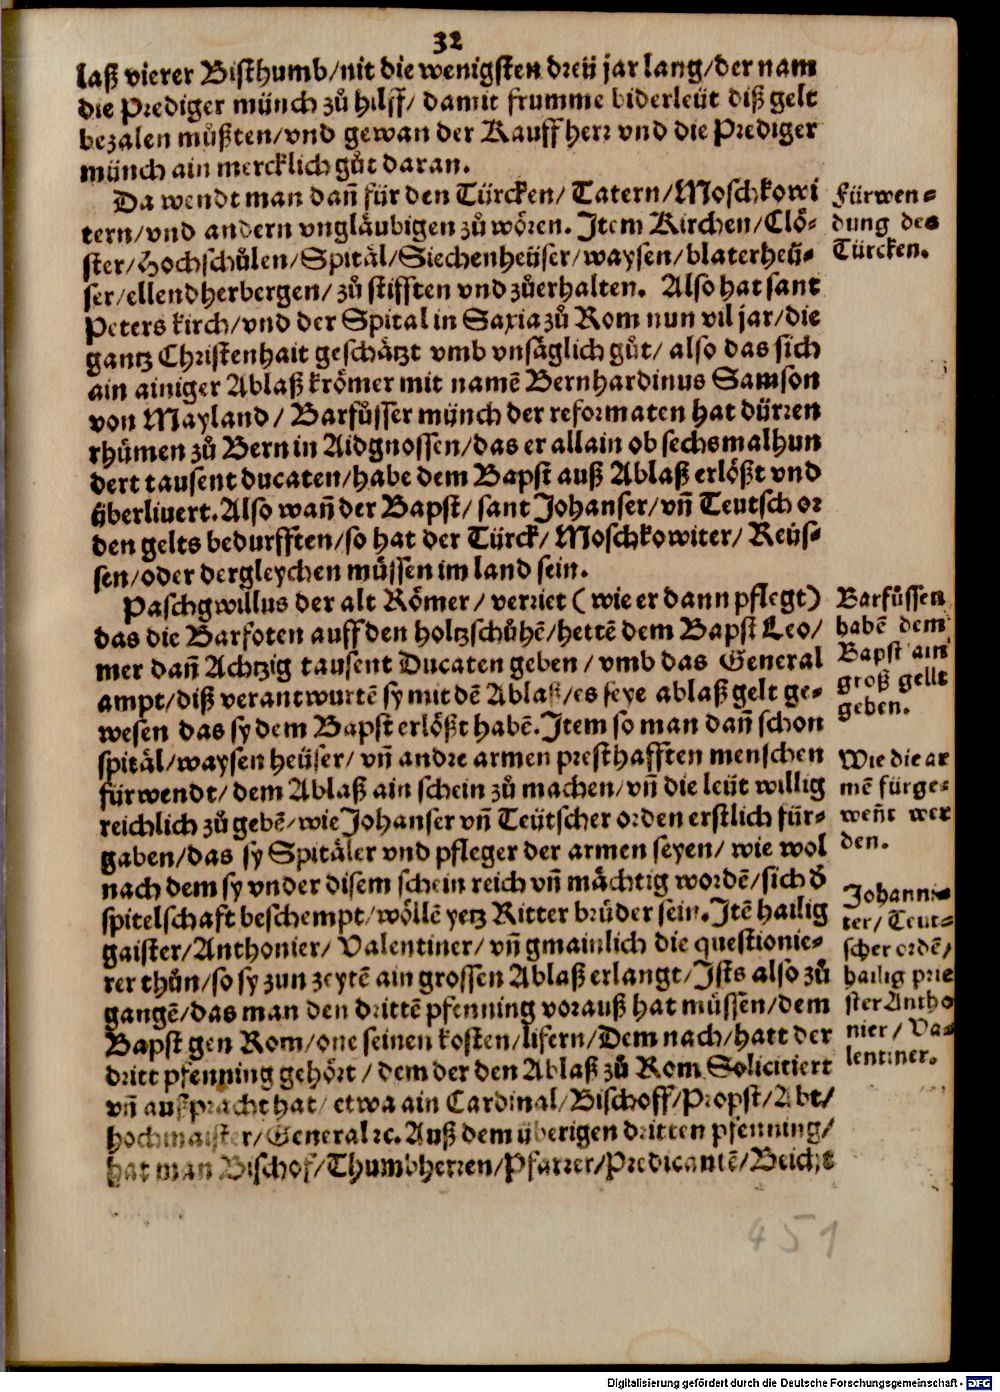 32
laß vierer Bisthumb/nit die wenigsten dreü jar lang/der nam
die Prediger münch zů hilff/ damit frumme biderleüt diß gelt
bezalen můßten/vnd gewan der Kauffherr vnd die Prediger
münch ain mercklich gůt daran.
Da wendt man dañ für den Türcken/ Tatern/Moschkowi
tern/vnd andern vngläubigen zů wören. Item Kirchen/Clö⸗
ster/Hochschůlen/Spitäl/Siechenheüser/waysen/blaterheü⸗
ser/ellendherbergen/ zů stifften vnd zůerhalten. Also hat sant
Peters kirch/vnd der Spital in Saxia zů Rom nun vil jar/die
gantz Christenhait geschätzt vmb vnsäglich gůt/ also das sich
ain ainiger Ablaß krömer mit namē Bernhardinus Samson
von Mayland/ Barfůsser münch der reformaten hat dürren
rhümen zů Bern in Aidgnossen/das er allain ob sechsmalhun
dert tausent ducaten/habe dem Bapst auß Ablaß erlößt vnd
überliuert. Also wañ der Bapst/ sant Johanser/vñ Teutsch or
den gelts bedurfften/so hat der Türck/ Moschkowiter/ Reüs⸗
sen/oder dergleychen müssen im land sein.
Fürwen⸗
dung des
Türcken.
Paschgwillus der alt Römer/ verriet (wie er dann pflegt)
das die Barfoten auff den holtzschůhē/hettē dem Bapst Leo/
mer dañ Achtzig tausent Ducaten geben/vmb das General
ampt/diß verantwurtē sy mit dē Ablaß/es seye ablaß gelt ge⸗
wesen das sy dem Bapst erlößt habē. Item so man dañ schon
spitäl/waysen heüser/ vñ andre armen presthafften menschen
fürwendt/dem Ablaß ain schein zů machen/vñ die leüt willig
reichlich zů gebē/wie Johanser vñ Teütscher orden erstlich für⸗
gaben/das sy Spitäler vnd pfleger der armen seyen/ wie wol
nach dem sy vnder disem schein reich vñ mächtig wordē/sich d̄
spitelschaft beschempt/wöllē yetz Ritter brüder sein. Itē hailig
gaister/Anthonier/ Valentiner/vñ gmainlich die questionie⸗
rer thůn/so sy zun zeytē ain grossen Ablaß erlangt/Ists also zů
gangē/das man den drittē pfenning vorauß hat müssen/dem
Bapst gen Rom/one seinen kosten/lifern/Dem nach/hatt der
dritt pfenning gehört/ dem der den Ablaß zů Rom Solicitiert
vñ außpracht hat/ etwa ain Cardinal/Bischoff/Propst/Abt/
hochmaister/General ꝛc. Auß dem überigen dritten pfenning/
hat man Bischof/Thumbherren/Pfarrer/Predicantē/Beicht
Barfůssen
habē dem
Bapst ain
groß gellt
geben.
Wie die ar
mē fürge⸗
weñt wer
den.
Johanni⸗
ter/ Teut⸗
scher ordē/
hailig prie
ster Antho
nier/ Va⸗
lentiner.
451
Digitalisierung gefördert durch die Deutsche Forschungsgemeinschaft - DFG